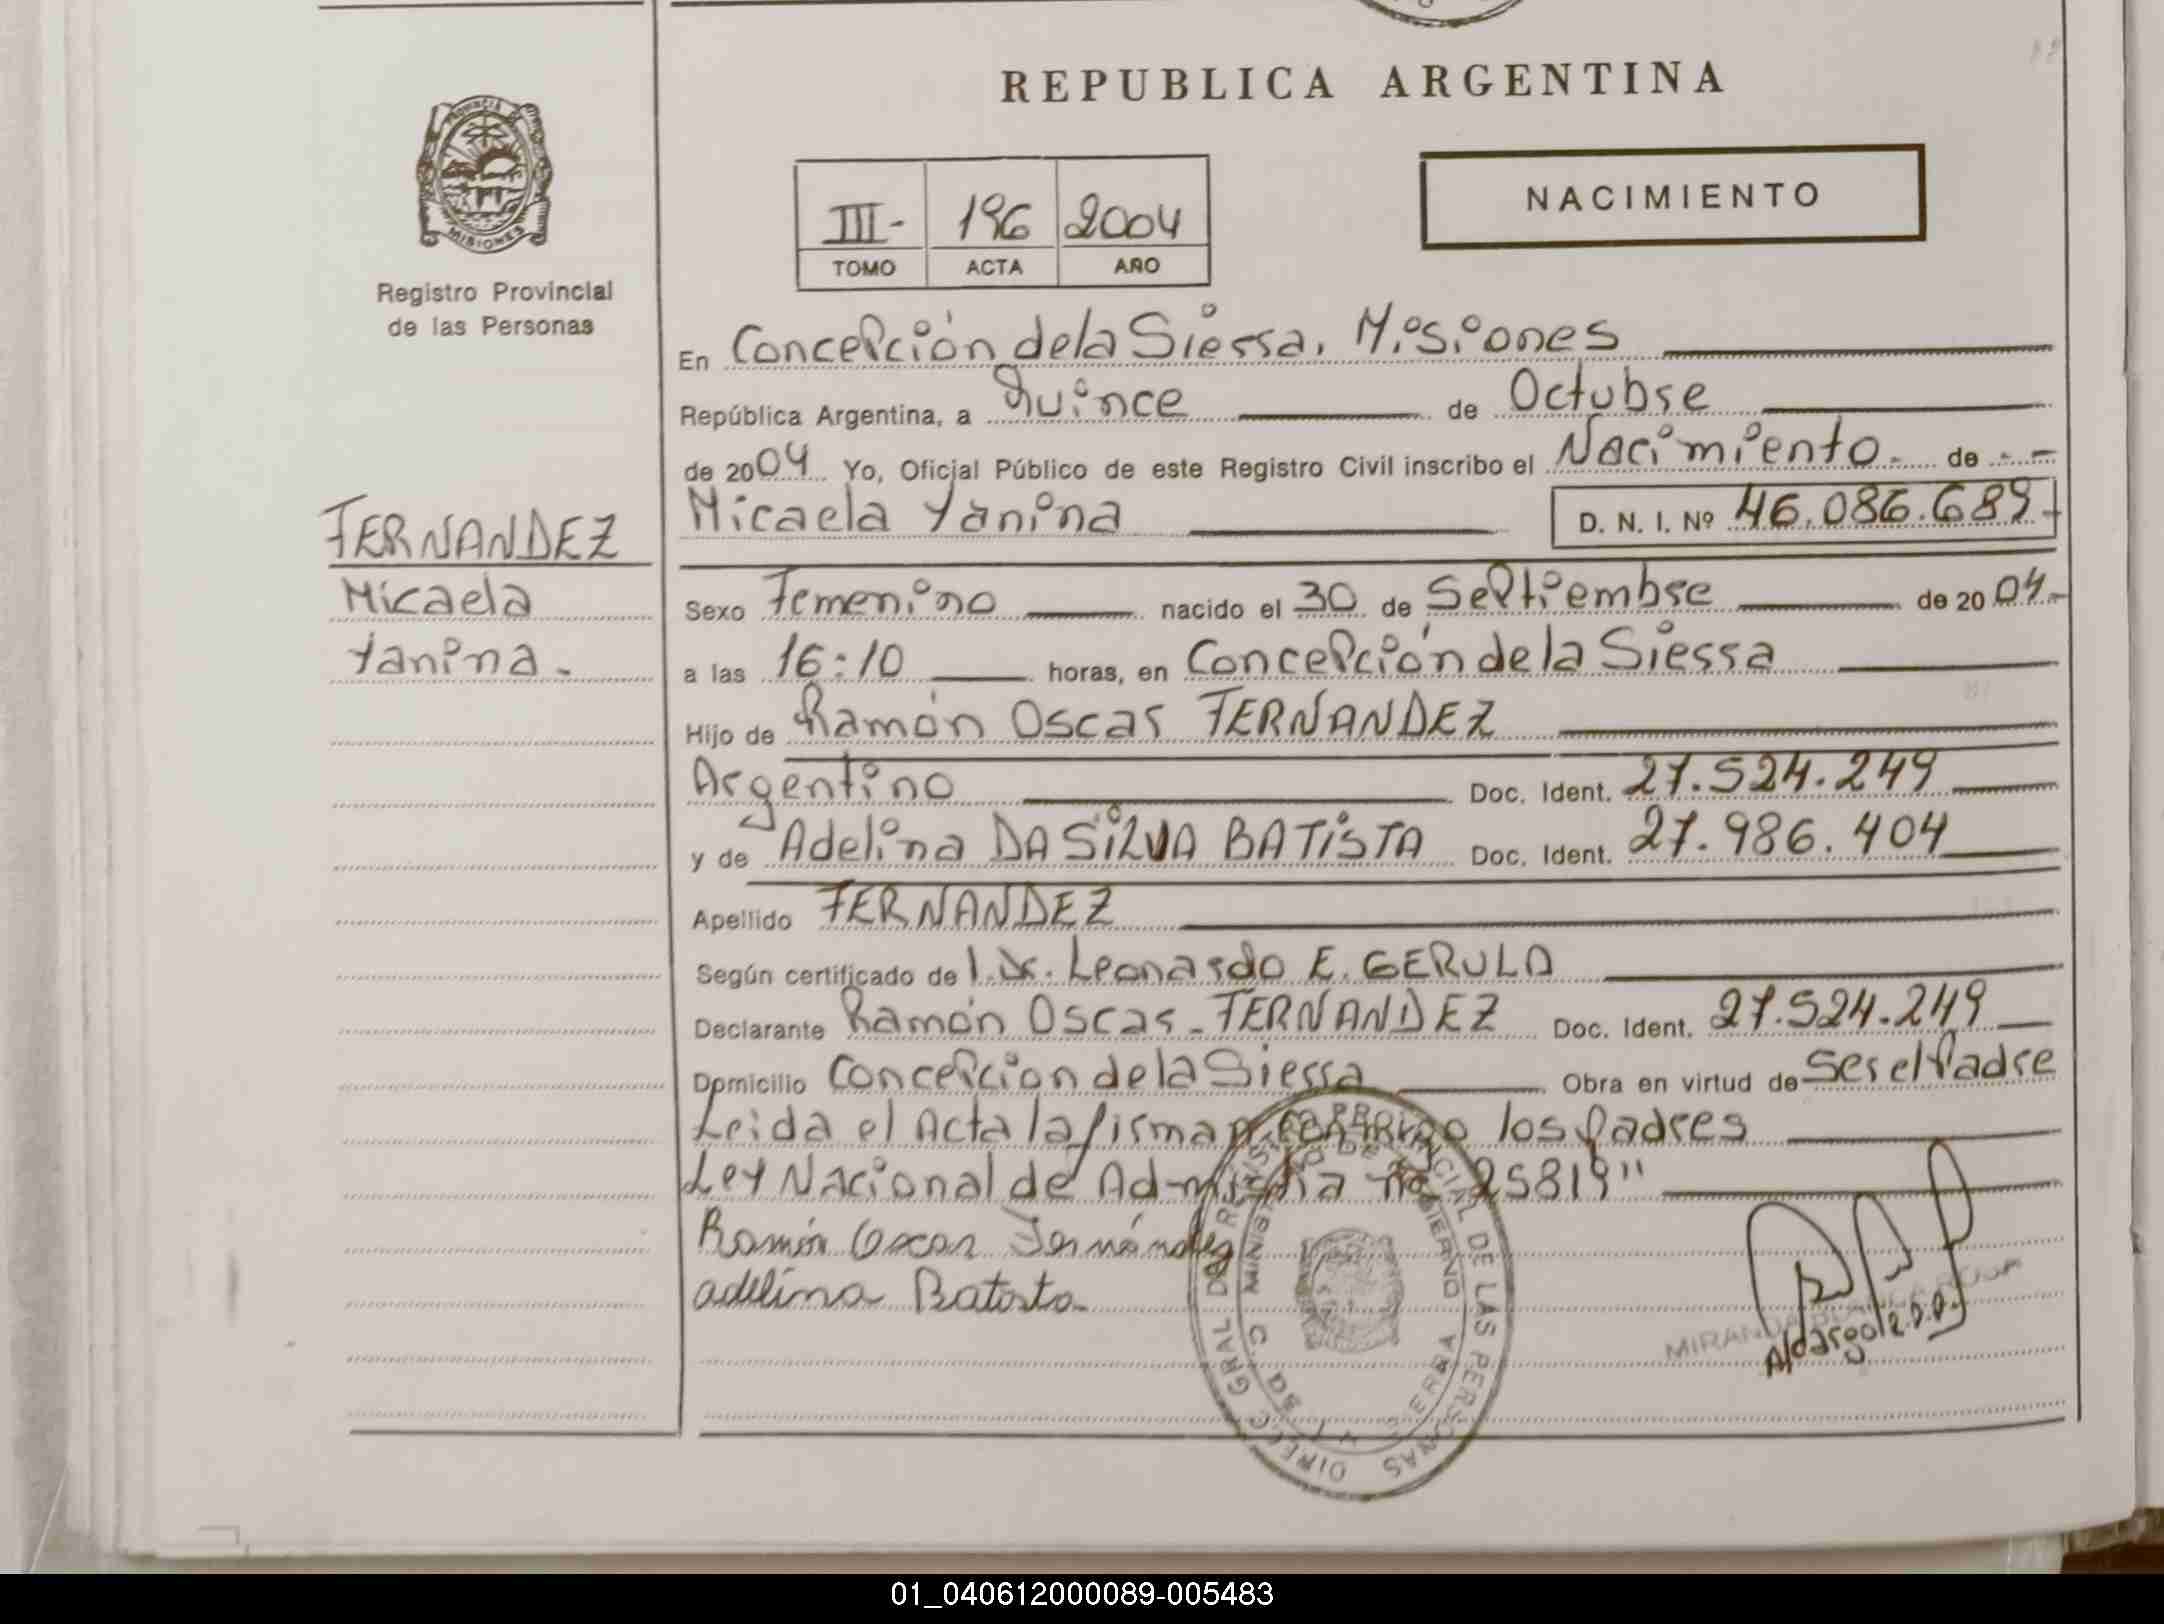 REPUBLICA ARGENTINA
PROVINCIA
MISIONES
Registro Provincial
de las Personas
NACIMIENTO
III- 196 2004
TOMO ACTA AÑO
En Concepción de la Sierra, Misiones
República Argentina, a Quince de Octubre
de 2004 Yo, Oficial Público de este Registro Civil inscribo el Nacimiento. de
Micaela Yanina D. N. I. Nº 46.086.689
FERNANDEZ
Micaela
Yanina.
Sexo Femenino nacido el 30 de Septiembre de 2004
a las 16:10 horas, en Concepción de la Sierra
Hijo de Ramón Oscar FERNANDEZ
Argentino Doc. Ident. 27.524.249
y de Adelina DA SILVA BATISTA Doc. Ident. 27.986.404
Apellido FERNANDEZ
Según certificado de l. Dr. Leonardo E. GERULA
Declarante Ramón Oscar FERNANDEZ Doc. Ident. 27.524.249
Domicilio Concepcion de la Sierra Obra en virtud de Ser el Padre
Leida el Acta la firman los Padres
Ley Nacional de Admistia no 25819"
Ramón Oscar Fernández
adelina Batista
DIRECC GRAL DEL REGISTRO PROVINCIAL DE LAS PERSONAS
MINISTERIO DE GOBIERNO
MIRANDA
01_040612000089-005483